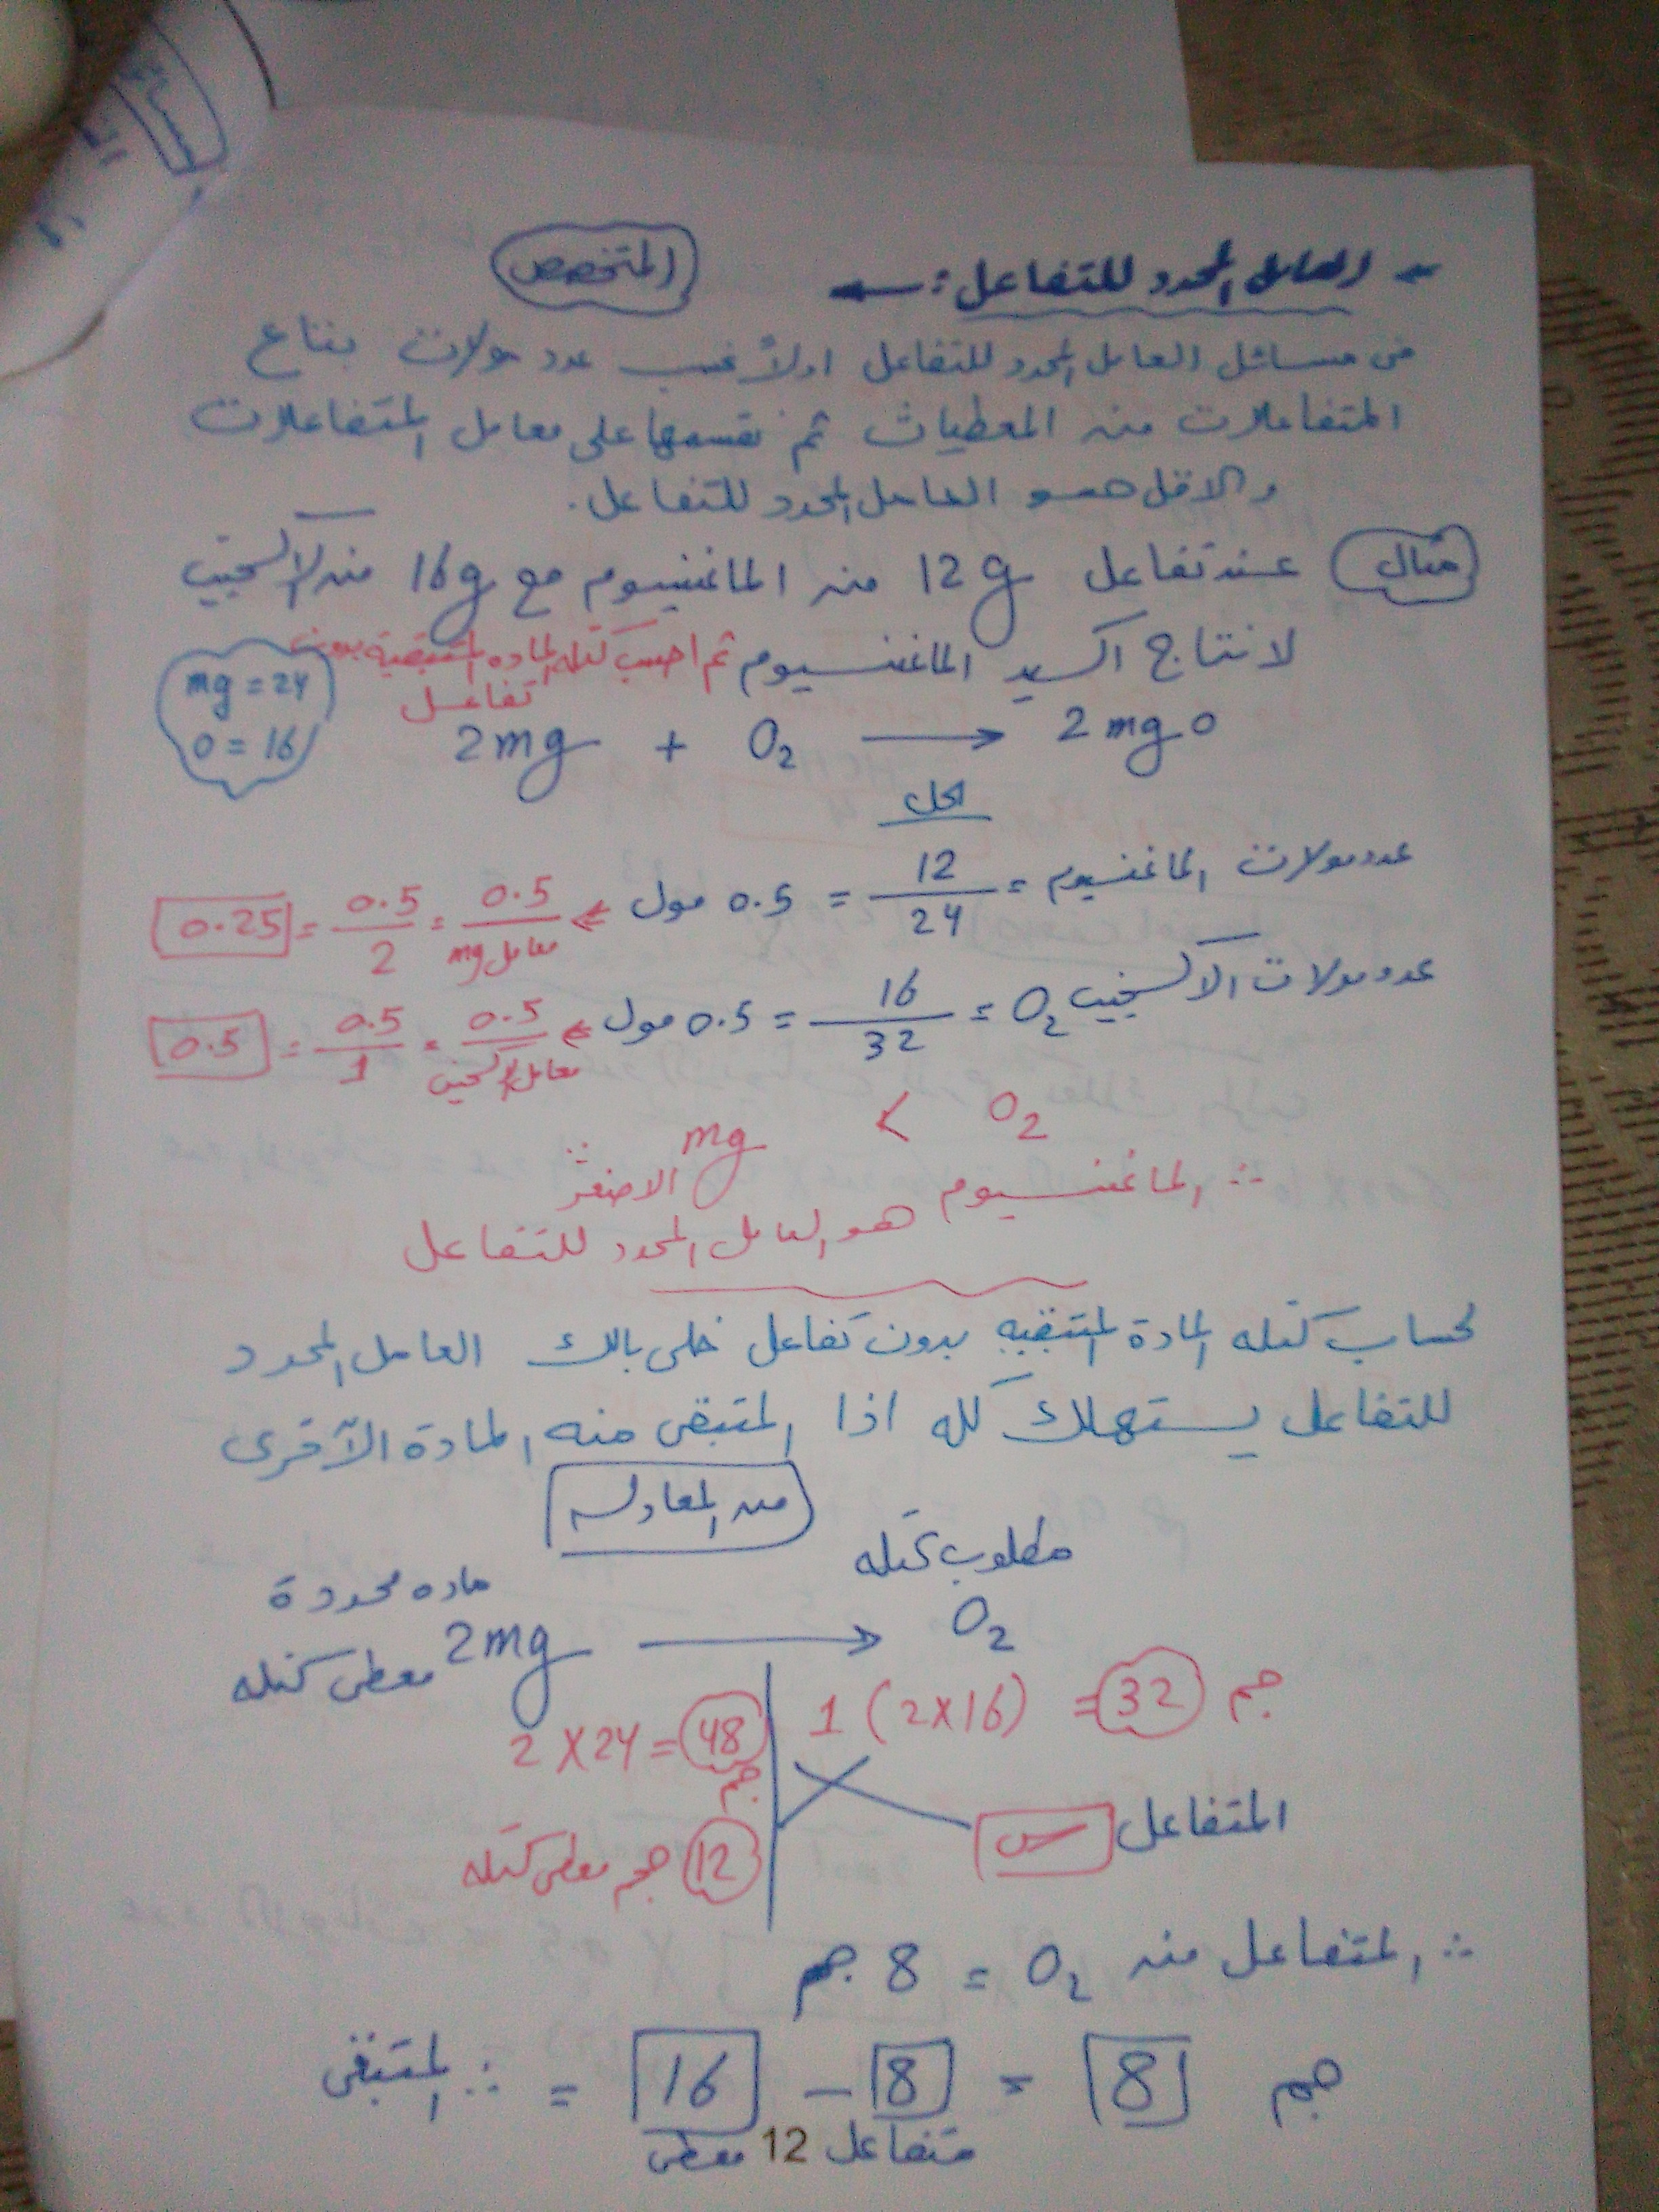 ← العامل المحدد للتفاعل :← (المتخصص)
فى مسائل العامل المحدد للتفاعل اولاً نحسب عدد مولات بتاع
المتفاعلات من المعطيات ثم نقسمها على معامل المتفاعلات
والاقل هو العامل المحدد للتفاعل.
مثال عند تفاعل 12g من الماغنسيوم مع 16g من الاكسجين
لانتاج اكسيد الماغنسيوم ثم احسب كتله الماده المتبقية بدون
تفاعل
mg = 24
O = 16
2mg + O2 → 2mgo
الحل
عدد مولات الماغنسيوم = 12/24 = 0.5 مول ⇐ 0.5/معامل mg = 0.5/2 = 0.25
عدد مولات الاكسجين O2 = 16/32 = 0.5 مول ⇐ 0.5/معامل الاكسجين = 0.5/1 = 0.5
mg < O2
∴ الماغنسيوم الاصغر
هو العامل المحدد للتفاعل
لحساب كتله المادة المتبقيه بدون تفاعل خلى بالك العامل المحدد
للتفاعل يستهلك كله اذا المتبقى من المادة الآخرى
من المعادله
مطلوب كتله
ماده محددة
معطى كتله 2mg → O2
2 X 24 = 48 جم
1 (2X16) = 32 جم
12 جم معطى كتله
المتفاعل س
∴ المتفاعل من O2 = 8 جم
∴ المتبقى = 16 - 8 = 8 جم
معطى 12 متفاعل